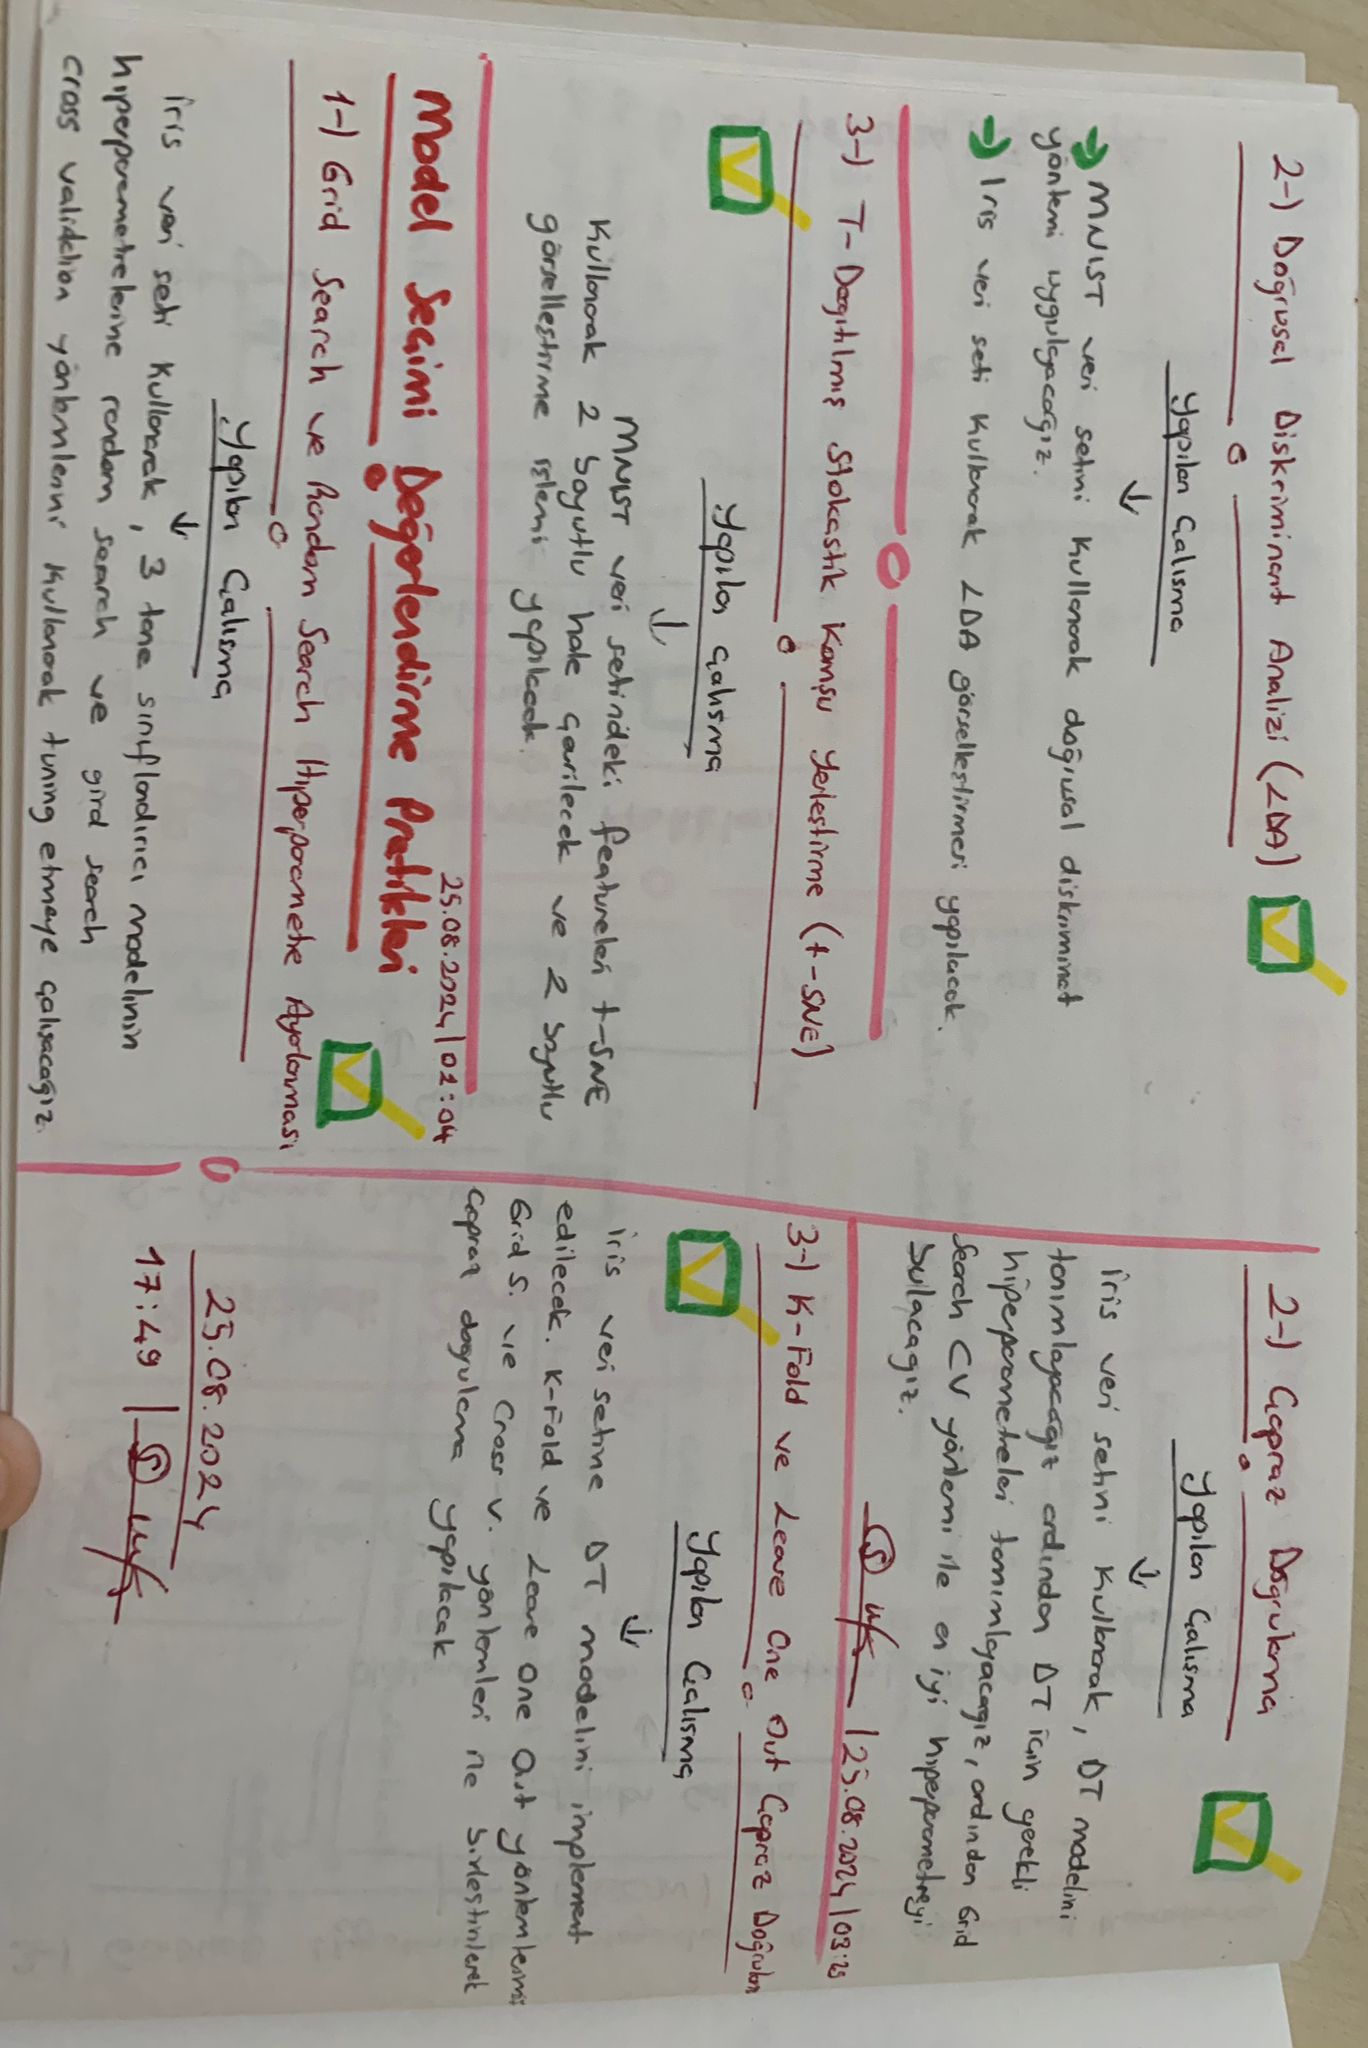 2-) Doğrusal Diskriminant Analizi (LDA)
Yapılan Çalışma
↓
→ MNIST veri setini kullanarak doğrusal diskriminat
yöntemi uygulayacağız.
→ Iris veri seti kullanarak LDA görselleştirmesi yapılacak.
3-) T-Dağıtılmış Stokastik Komşu Yerleştirme (t-SNE)
Yapılan Çalışma
↓
MNIST veri setindeki featureları t-SNE
kullanarak 2 boyutlu hale çevrilecek ve 2 boyutlu
görselleştirme işlemi yapılacak.
25.08.2024 | 02:04
Model Seçimi Değerlendirme Pratikleri
1-) Grid Search ve Random Search Hiperparametre Ayarlaması
Yapılan Çalışma
↓
İris veri seti kullanarak, 3 tane sınıflandırıcı modelinin
hiperparametrelerine random search ve gird search
cross validation yöntemlerini kullanarak tuning etmeye çalışacağız.
2-) Çapraz Doğrulama
Yapılan Çalışma
↓
İris veri setini kullanarak, DT modelini
tanımlayacağız ardından DT için gerekli
hiperparametreleri tanımlayacağız, ardından Grid
Search CV yöntemi ile en iyi hiperparametreyi
bulacağız.
| 25.08.2024 | 03:25
3-) K-Fold ve Leave One Out Çapraz Doğrulama
Yapılan Çalışma
↓
İris veri setine DT modelini implement
edilecek. K-Fold ve Leave One Out yöntemlerini
Grid S. ve Cross V. yöntemleri ile birleştirilerek
çapraz doğrulama yapılacak
25.08.2024
17:49 |